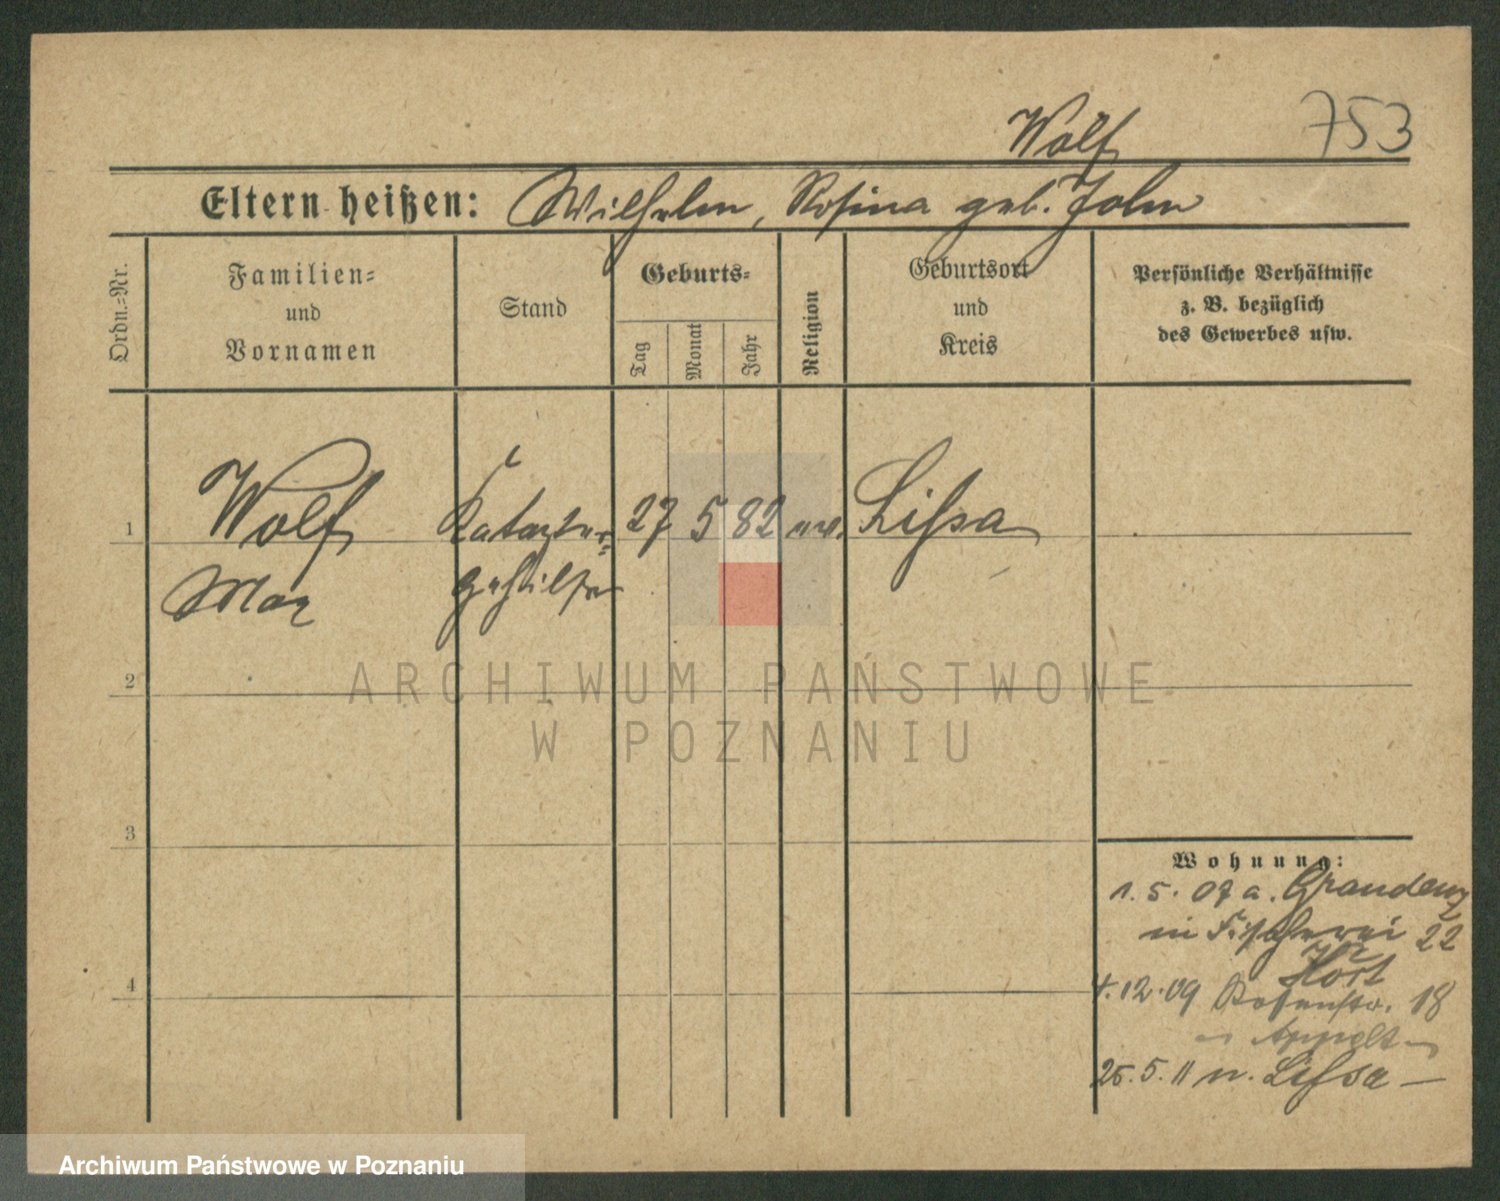 Wolf 753
Eltern heißen: Wilhelm, Rosina geb. John
Ordn.-Nr.
Familien-
und
Vornamen
Stand
Geburts-
Tag
Monat
Jahr
Religion
Geburtsort
und
Kreis
Persönliche Verhältnisse
z. B. bezüglich
des Gewerbes usw.
1 Wolf Kataster- 27 5 82 ev. Lissa
Max gehilfe
2
ARCHIWUM PAŃSTWOWE
W POZNANIU
3
Wohnung:
1. 5. 07 a. Graudenz
in Fischerei 22
4
4.12.09 Rosenstr. 18
Appelt
25.5.11 n. Lissa
Archiwum Państwowe w Poznaniu